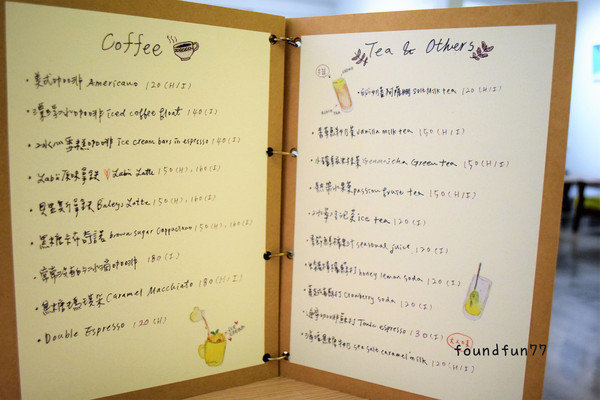 Coffee
• 美式咖啡 Americano 120 (H/I)
• 漂浮冰咖啡 iced coffee float 140 (I)
• 冰心雪糕咖啡 ice cream bars in espresso 140 (I)
• Labin原味拿鐵 Labin Latte 150 (H), 160 (I)
• 貝里斯拿鐵 Baileys Latte 150 (H), 160 (I)
• 黑糖卡布奇諾 brown sugar Cappuccino 150 (H), 160 (I)
咖啡 180 (I)
• 焦糖瑪琪朵 Caramel Macchiato 180 (H/I)
• Double Espresso 120 (H)
ICE CREAM
Tea & Others
milk tea 120 (H/I)
• 香草奶茶 Vanilla milk tea 150 (H/I)
• Genmaicha Green tea 150 (H/I)
• 熱帶水果茶 passion fruit tea 150 (H/I)
ice tea 120 (I)
• 季節鮮果汁 seasonal juice 120 (I)
• 蜂蜜檸檬蘇打 honey lemon soda 120 (I)
• 蔓越莓蘇打 Cranberry soda 120 (I)
• 通寧咖啡蘇打 Tonic espresso 130 (I)
• 海鹽焦糖牛奶 sea salt caramel milk 120 (H/I)
foundfun77